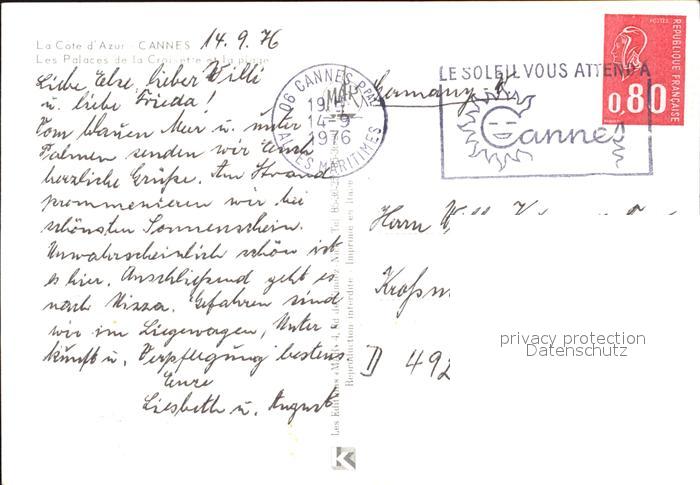 La Cote d'Azur - CANNES
14.9.76
Les Palaces de la Croisette et la plage
Liebe Else, lieber Willi
u. liebe Frieda!
Vom blauen Meer u. unter
Palmen senden wir Euch
herzliche Grüße. Am Strand
prommenieren wir bei
schönsten Sonnenschein.
Unwahrscheinlich schön ist
es hier. Anschließend geht es
nach Nizza. Gefahren sind
wir im Liegewagen, Unter
kunft u. Verpflegung bestens
Eure
Liesbeth u. August
06 CANNES PPAL
19 H
MAR
14-9
1976
ALPES MARITIMES
Germany
LE SOLEIL VOUS ATTEND A
Cannes
POSTES
REPUBLIQUE FRANÇAISE
0,80
Herrn
D 492
privacy protection
Datenschutz
Reproduction interdite - Imprimé en
K